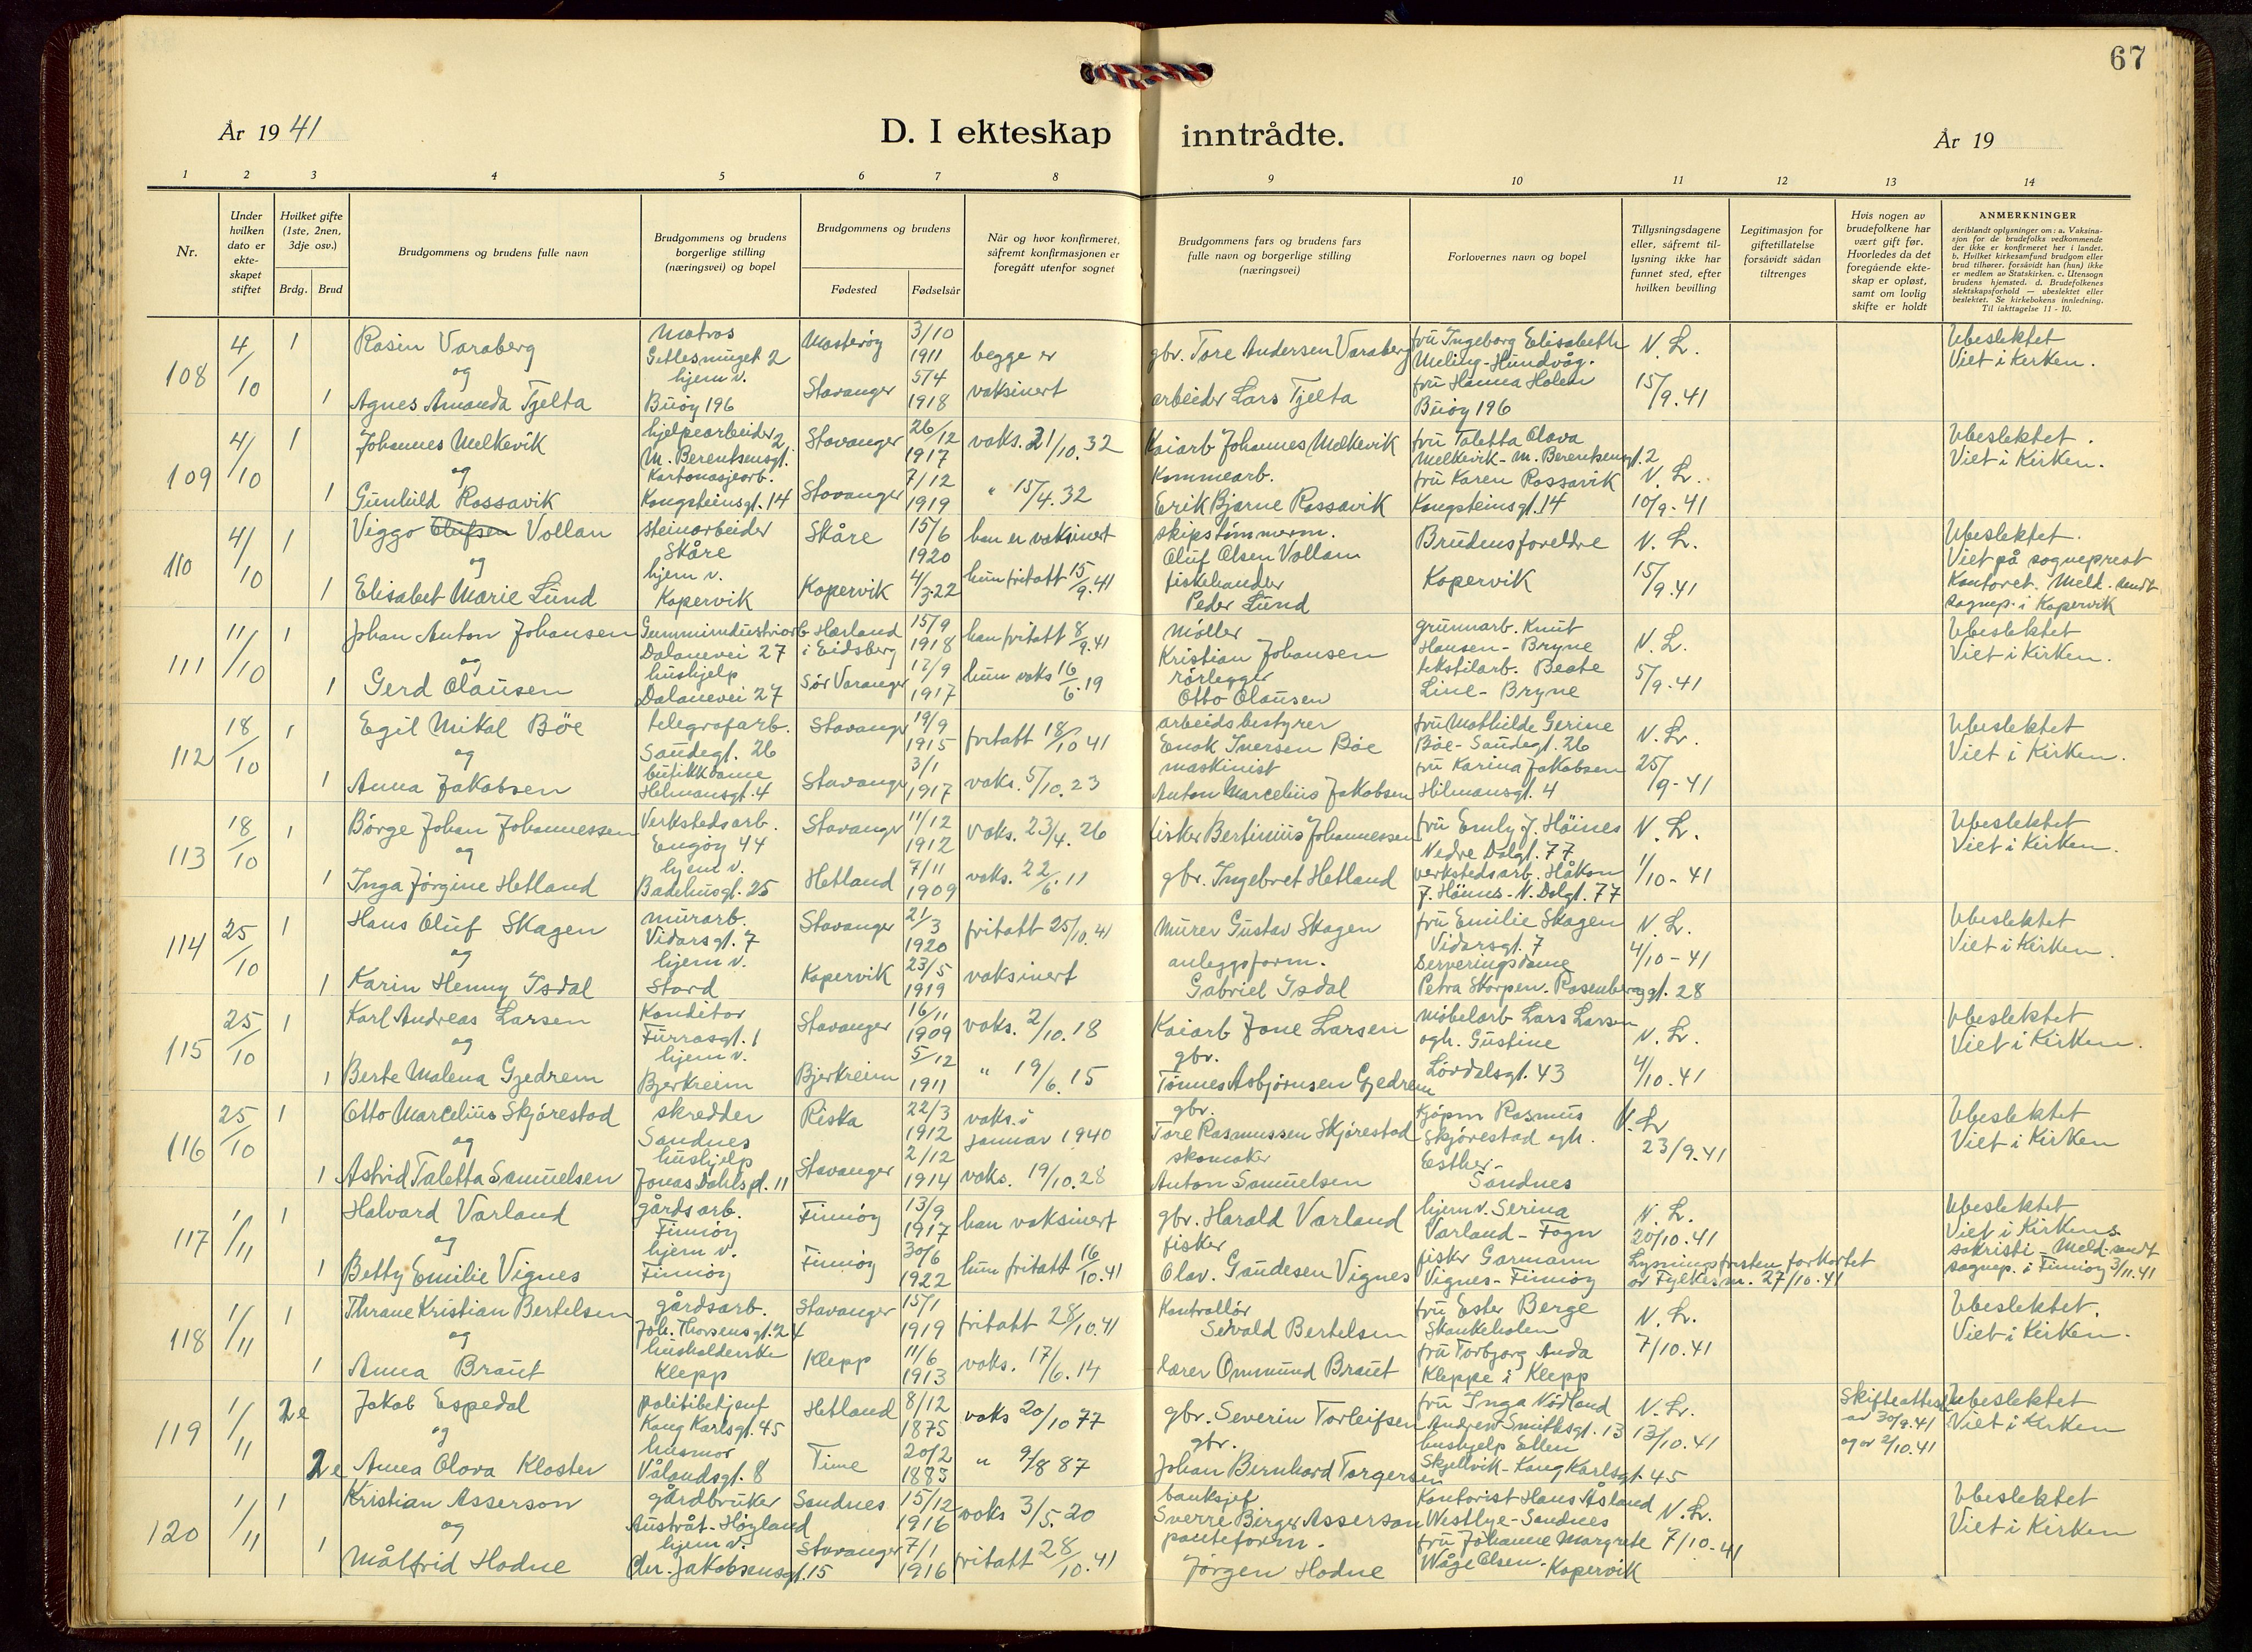 67
År 1941
D. I ekteskap inntrådte.
År 19
1 2 3 4 5 6 7 8 9 10 11 12 13 14
Nr.
Under hvilken dato er ekte-skapet stiftet
Hvilket gifte (1ste, 2nen, 3dje osv.)
Brdg. Brud
Brudgommens og brudens fulle navn
Brudgommens og brudens borgerlige stilling (næringsvei) og bopel
Brudgommens og brudens
Fødested Fødselsår
Når og hvor konfirmeret, såfremt konfirmasjonen er foregått utenfor sognet
Brudgommens fars og brudens fars fulle navn og borgerlige stilling (næringsvei)
Forlovernes navn og bopel
Tillysningsdagene eller, såfremt til-lysning ikke har funnet sted, efter hvilken bevilling
Legitimasjon for giftetillatelse forsåvidt sådan tiltrenges
Hvis nogen av brudefolkene har vært gift før. Hvorledes da det foregående ekte-skap er opløst, samt om lovlig skifte er holdt
ANMERKNINGER
deriblandt oplysninger om: a. Vaksina-sjon for de brudefolks vedkommende der ikke er konfirmeret her i landet. b. Hvilket kirkesamfund brudgom eller brud tilhører, forsåvidt han (hun) ikke er medlem av Statskirken. c. Utensogn brudens hjemsted. d. Brudefolkenes slektskapsforhold — ubeslektet eller beslektet. Se kirkebokens innledning. Til iakttagelse 11 - 10.
108 4/10 1 Rasin Varaberg Matros Gitlesmuget 2 Mosterøy 3/10 1911 begge er gbr. Tore Andersen Varaberg fru Ingeborg Elisabeth Meling-Hundvåg. N. L. Ubeslektet
og
1 Agnes Amanda Tjelta hjem v. Buøy 196 Stavanger 5/4 1918 vaksinert arbeider Lars Tjelta fru Hanna Holen Buøy 196 15/9.41 Viet i Kirken.
109 4/10 1 Johannes Melkevik hjelpearbeider M. Berentsensgt. 2 Stavanger 26/12 1917 vaks. 21/10.32 Kaiarb Johannes Melkevik fru Taletta Olava Melkevik - M. Berentsensgt. 2 N. L. Ubeslektet.
og
1 Gunhild Rossavik Kartonasjearb. Kongsteinsgt. 14 Stavanger 7/12 1919 " 15/4.32 Kommearb. Erik Bjarne Rossavik fru Karen Rossavik Kongsteinsgt. 14 10/9-41 Viet i Kirken.
110 4/10 1 Viggo Olufsen Vollan steinarbeider Skåre Skåre 15/6 1920 han er vaksinert skipstømmerm. Oluf Olsen Vollan Brudens foreldre N. L. Ubeslektet.
og
1 Elisabet Marie Lund hjem v. Kopervik Kopervik 4/3.22 hun fritatt 15/9.41 fiskehandler Peder Lund Kopervik 15/9.41 Viet på sogneprest Kontoret. Meld. sendt sognep. i Kopervik
111 11/10 1 Johan Anton Johansen Gummiindustriarb Dalanevei 27 Hærland i Eidsberg 15/9 1918 han fritatt 8/9.41 Møller Kristian Johansen grunnarb. Knut Hansen - Bryne N. L. Ubeslektet
og
1 Gerd Olausen hushjelp Dalanevei 27 Sør Varanger 12/9 1917 hun vaks 16/6.19 rørlegger Otto Olausen tekstilarb. Beate Line - Bryne 5/9.41 Viet i Kirken.
112 18/10 1 Egil Mikal Böe telegrafarb. Saudegt. 26 Stavanger 19/9 1915 fritatt 18/10 41 arbeidsbestyrer Enok Iversen Böe fru Mathilde Gerine Böe - Saudegt. 26 N. L. Ubeslektet
og
1 Anna Jakobsen butikkdame Hilmansgt. 4 Stavanger 3/1 1917 vaks. 5/10.23 maskinist Anton Marcelius Jakobsen fru Karina Jakobsen Hilmansgt. 4 25/9-41 Viet i Kirken.
113 18/10 1 Børge Johan Johannessen Verkstedsarb. Engøy 44 Stavanger 11/12 1912 vaks. 23/4.26 fisker Bertinius Johannessen fru Emly J. Höines Nedre Dalgt. 77 N. L. Ubeslektet
og
1 Inga Jørgine Hetland hjem v. Badehusgt. 25 Hetland 7/11 1909 vaks. 22/6.11 gbr. Ingebret Hetland verkstedsarb. Håkon J. Höines - N. Dalgt. 77 1/10-41 Viet i Kirken.
114 25/10 1 Hans Oluf Skagen murarb. Vidarsgt. 7 Stavanger 21/3 1920 fritatt 25/10.41 Murer Gustav Skagen fru Emilie Skagen Vidarsgt. 7 N. L. Ubeslektet
og
1 Karin Henny Isdal hjem v. Stord Kopervik 23/5 1919 vaksinert anleggsform. Gabriel Isdal Serveringsdame Petra Skorpen. Rosenberggt. 28 4/10-41 Viet i Kirken.
115 25/10 1 Karl Andreas Larsen Konditor Furrasgt. 1 Stavanger 16/11 1909 vaks. 2/10.18 Kaiarb Jone Larsen møbelarb Lars Larsen ogh. Gustine N. L. Ubeslektet
og
1 Berte Malena Gjedrem hjem v. Bjerkreim Bjerkreim 5/12 1911 " 19/6.15 gbr. Tønnes Asbjørnsen Gjedrem Lørdalsgt. 43 4/10.41 Viet i Kirken.
116 25/10 1 Otto Marcelius Skjørestad skredder Sandnes Riska 22/3 1912 vaks. i januar 1940 gbr. Tore Rasmussen Skjørestad Kjøpm Rasmus Skjørestad ogh. N. L. Ubeslektet
og
1 Astrid Taletta Samuelsen hushjelp Jonas Dahlsgt. 11 Stavanger 2/12 1914 vaks. 19/10.28 skomaker Anton Samuelsen Esther - Sandnes 23/9.41 Viet i Kirken
117 1/11 1 Halvard Varland gårdsarb. Finnøy Finnøy 13/9 1917 han vaksinert gbr. Harald Varland hjem v. Serina Varland - Fogn N. L. 20/10.41 Ubeslektet
og
1 Betty Emilie Vignes hjem v. Finnøy Finnøy 30/6 1922 hun fritatt 16/10.41 fisker Olav. Gaudesen Vignes fisker Garmann Vignes - Finnøy Lysningsfristen forkortet av Fylkesm. 27/10.41 Viet i Kirkens sakristi - Meld. sendt sognep. i Finnøy 3/11.41
118 1/11 1 Thrane Kristian Bertelsen gårdsarb. Joh. Thorsensgt. 24 Stavanger 15/1 1919 fritatt 28/10.41 Kontrollør Sevald Bertelsen fru Ester Berge Skankeholen N. L. Ubeslektet.
og
1 Anna Braut husholderske Klepp Klepp 11/6 1913 vaks. 17/6.14 lærer Ommund Braut fru Torbjørg Anda Kleppe i Klepp 7/10.41 Viet i Kirken.
119 1/11 2e Jakob Espedal politibetjent Kong Karlsgt. 45 Hetland 8/12 1875 vaks 20/10 77 gbr. Severin Torleifsen fru Inga Nødland Andrew Smithsgt. 13 N. L. Skifteattest av 30/9.41 Ubeslektet
og
2e Anna Olava Kloster husmor Vålandsgt. 8 Time 20/2 1883 " 9/8 87 gbr. Johan Bernhard Torgersen hushjelp Ellen Skjellvik - Kong Karlsgt. 45 13/10.41 og av 2/10.41 Viet i Kirken
120 1/11 1 Kristian Asserson gårdbruker Austråt - Høyland Sandnes 15/12 1916 vaks 3/5.20 banksjef Sverre Birger Asserson Kontorist Hans Åsland Westlye - Sandnes N. L. Ubeslektet
og
1 Målfrid Hodne hjem v. Chr. Jakobsensgt. 15 Stavanger 7/1 1916 fritatt 28/10.41 panteform. Jørgen Hodne fru Johanne Margrete Våge Olsen - Kopervik 7/10-41 Viet i Kirken